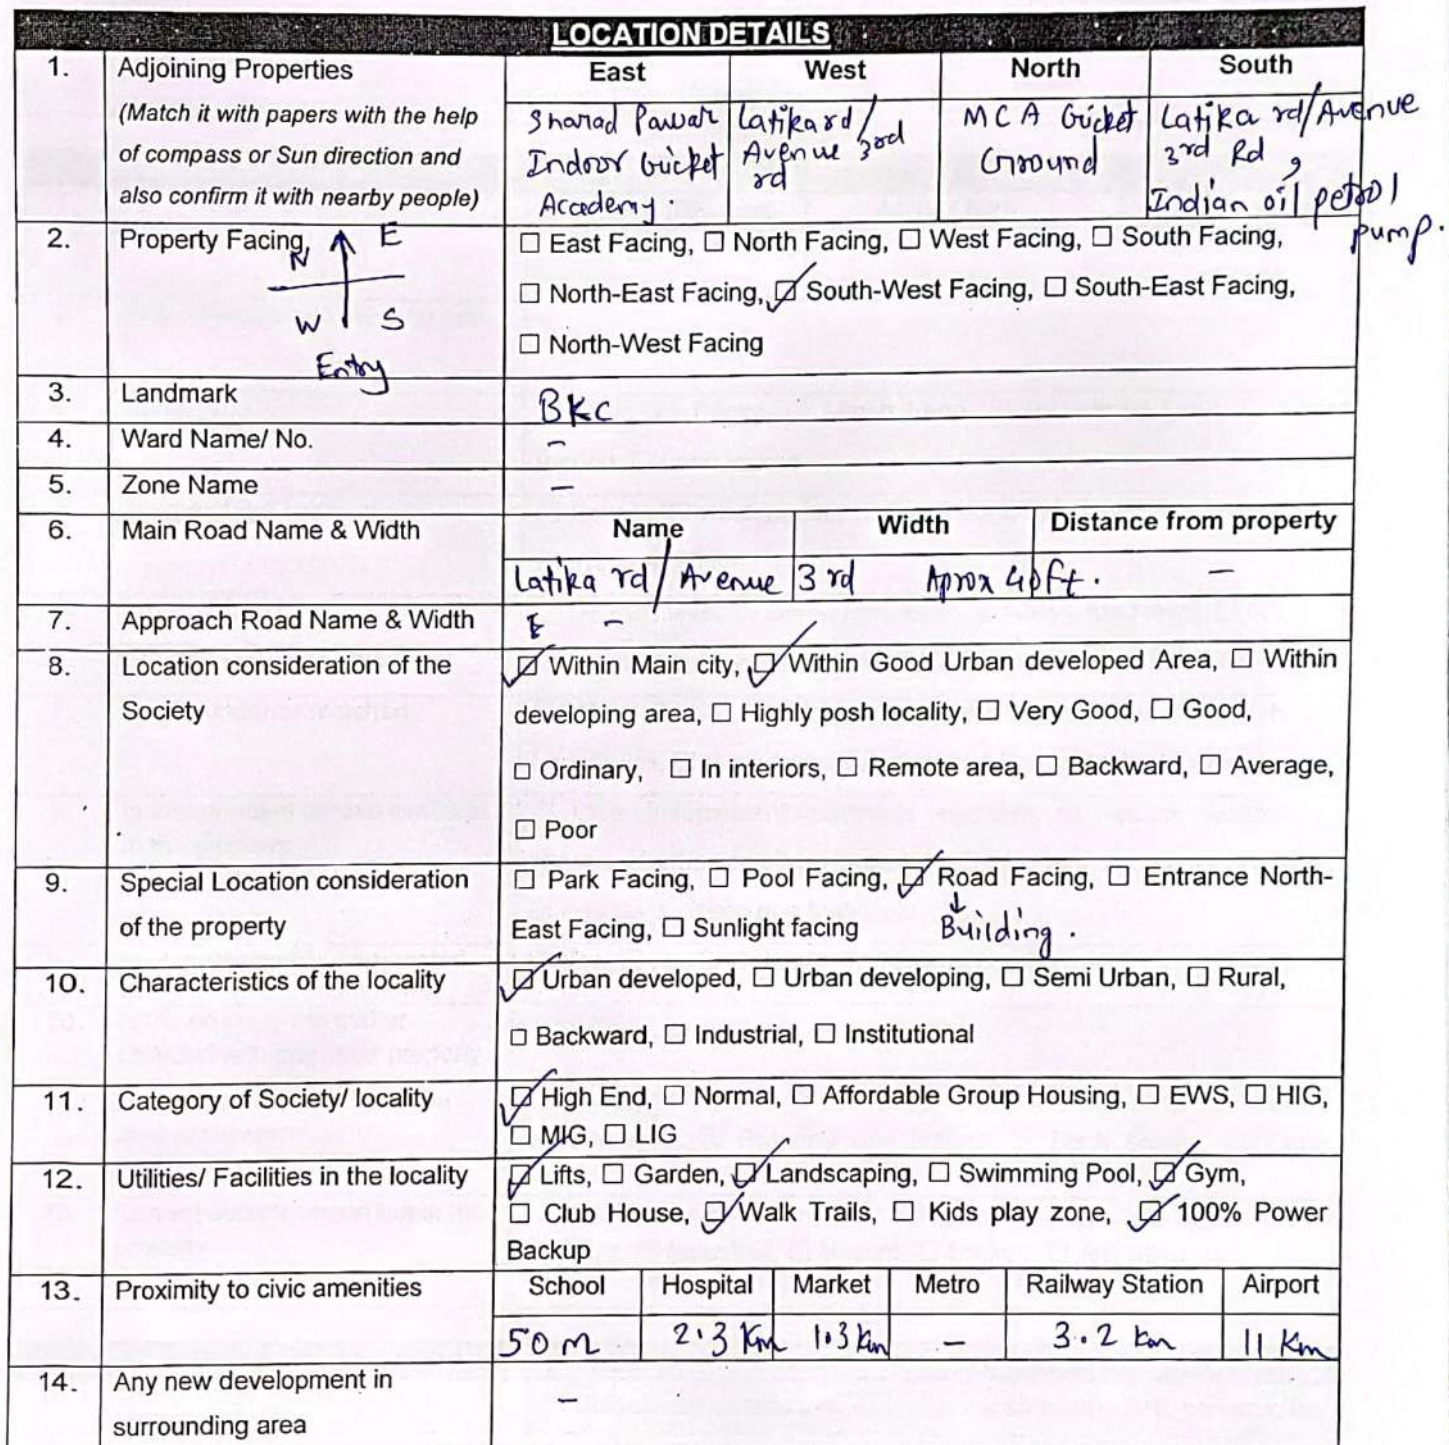 LOCATION DETAILS
1. Adjoining Properties East West North South
(Match it with papers with the help
of compass or Sun direction and
also confirm it with nearby people)
Sharad Pawar
Indoor Cricket
Academy.
Latika rd/
Avenue 3rd
rd
MCA Cricket
Ground
Latika rd/Avenue
3rd Rd,
Indian oil petrol
pump.
2. Property Facing
N E
W S
Entry
☐ East Facing, ☐ North Facing, ☐ West Facing, ☐ South Facing,
☐ North-East Facing, ☑ South-West Facing, ☐ South-East Facing,
☐ North-West Facing
3. Landmark BKC
4. Ward Name/ No. -
5. Zone Name -
6. Main Road Name & Width Name Width Distance from property
Latika rd/Avenue 3rd Aprox 40ft. -
7. Approach Road Name & Width -
8. Location consideration of the
Society
☑ Within Main city, ☑ Within Good Urban developed Area, ☐ Within
developing area, ☐ Highly posh locality, ☐ Very Good, ☐ Good,
☐ Ordinary, ☐ In interiors, ☐ Remote area, ☐ Backward, ☐ Average,
☐ Poor
9. Special Location consideration
of the property
☐ Park Facing, ☐ Pool Facing, ☑ Road Facing, ☐ Entrance North-
East Facing, ☐ Sunlight facing ↓ Building.
10. Characteristics of the locality
☑ Urban developed, ☐ Urban developing, ☐ Semi Urban, ☐ Rural,
☐ Backward, ☐ Industrial, ☐ Institutional
11. Category of Society/ locality
☑ High End, ☐ Normal, ☐ Affordable Group Housing, ☐ EWS, ☐ HIG,
☐ MIG, ☐ LIG
12. Utilities/ Facilities in the locality
☑ Lifts, ☐ Garden, ☑ Landscaping, ☐ Swimming Pool, ☑ Gym,
☐ Club House, ☑ Walk Trails, ☐ Kids play zone, ☑ 100% Power
Backup
13. Proximity to civic amenities School Hospital Market Metro Railway Station Airport
50m 2.3 Km 1.3 km - 3.2 km 11 Km
14. Any new development in
surrounding area
-